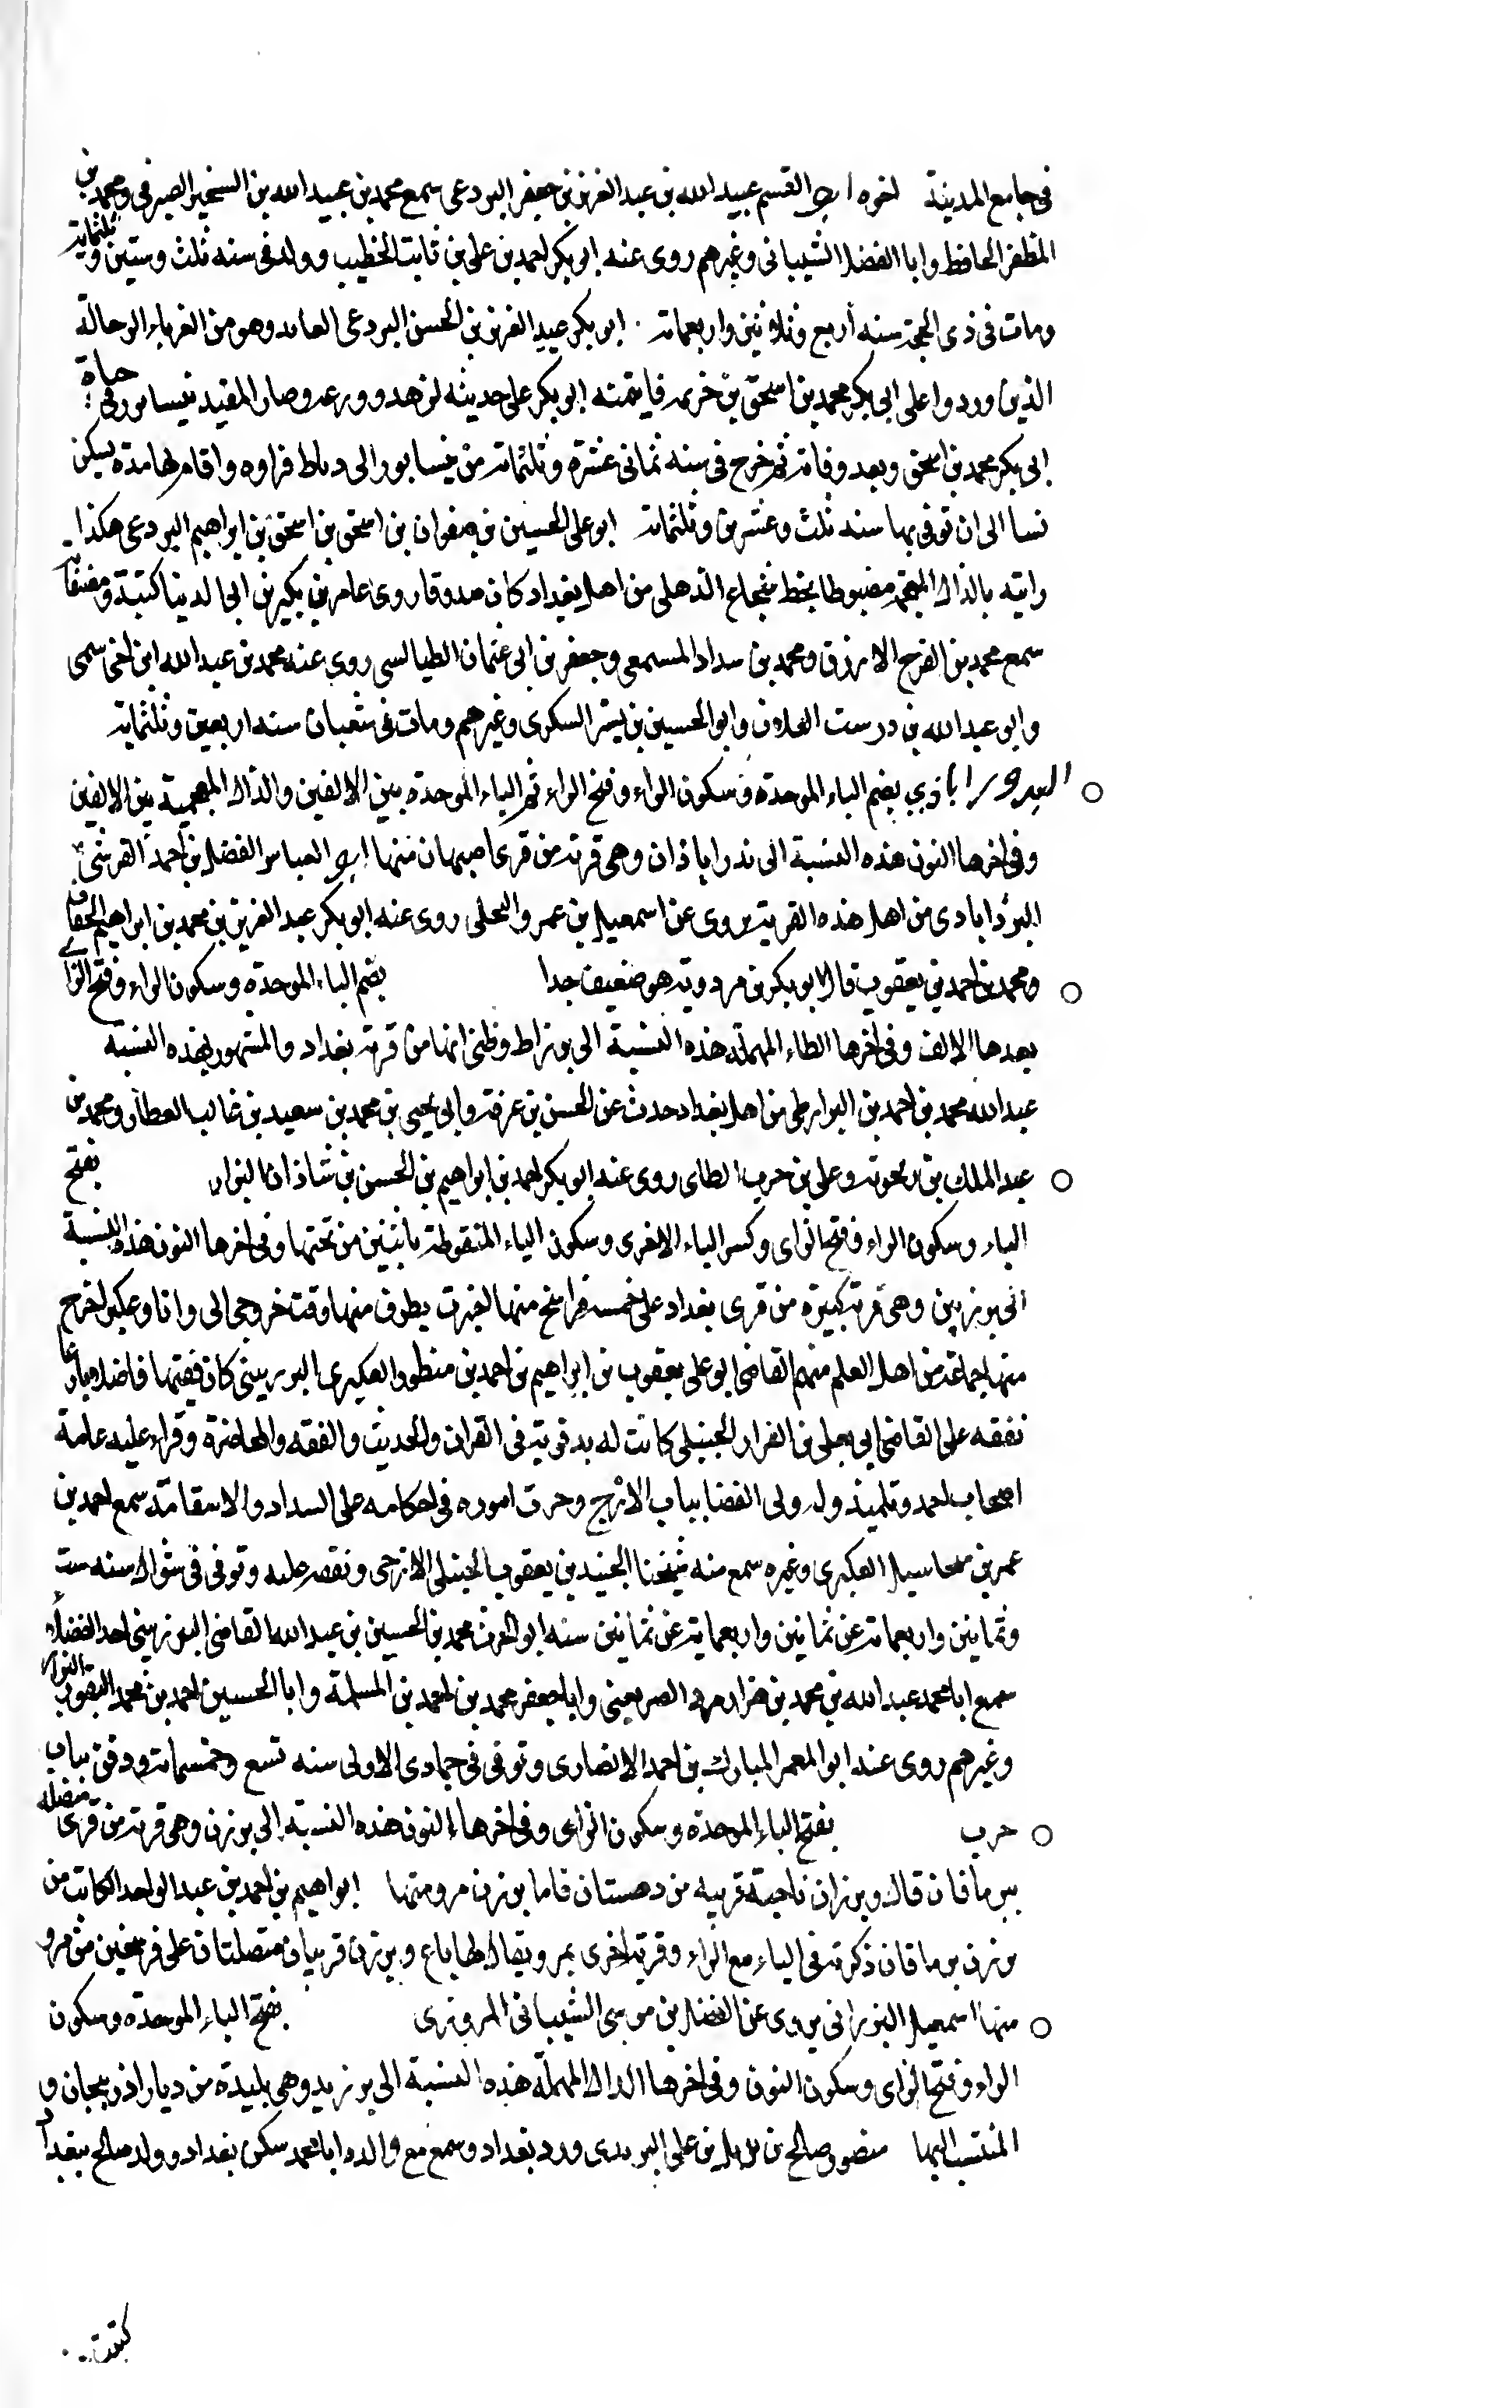 في جامع المدينة اخره ابو القسم عبيد الله بن عبد العزيز بن جعفر البردعي سمع محمد بن عبيد الله بن الشخير الصيرفي ومحمد بن
المظفر الحافظ وابا الفضل الشيباني وغيرهم روى عنه ابو بكر احمد بن علي بن ثابت الخطيب وولد في سنه ثلث وستين وثلثماية
ومات في ذي الحجة سنه أربع وثلاثين واربعماية ابو بكر عبد العزيز بن الحسن البردعي العابد وهو من الغرباء الرحالة
الذين وردوا على ابي بكر محمد بن اسحق بن خزيمة فايتمنه ابو بكر على حديثه لزهده وورعه وصار المفيد بنيسابور في حياة
ابي بكر محمد بن اسحق وبعد وفاته ثم خرج في سنه ثماني عشرة وثلثماية من نيسابور الى رباط فراوه واقام بها مدة يسكن
نسا الى ان توفي بها سنه ثلث وعشرين وثلثماية ابو علي الحسين بن صفوان بن اسحق بن اسحق بن ابراهيم البردعي هكذا
رايته بالذال المعجمة مضبوطا بخط شجاع الذهلي من اهل بغداد كان صدوقا روى عامر بن بكير بن ابي الدنيا كتبه ومصنفاته
سمع محمد بن الفرج الازرق ومحمد بن سداد المسمعي وجعفر بن ابي عثمان الطيالسي روى عنه محمد بن عبد الله ابن اخي سمي
وابو عبد الله بن درست العلاف وابو الحسين بن بشر السكري وغيرهم ومات في شعبان سنه اربعين وثلثماية
بضم الباء الموحدة وسكون الراء وفتح الراء ثم الباء الموحدة بين الالفين والذال المعجمة بين الالفين
وفي اخرها النون هذه النسبة الى ندراباذان وهي قرية من قرى اصبهان منها ابو العباس الفضل بن أحمد القرشي
البرداباذي من اهل هذه القرية يروى عن اسمعيل بن عمرو البجلي روى عنه ابو بكر عبد العزيز بن محمد بن ابراهيم الخفاف
ومحمد بن احمد بن يعقوب قال ابو بكر بن مردويه هو ضعيف جدا بضم الباء الموحدة وسكون الراء وفتح الزاي
بعدها الالف وفي اخرها الطاء المهملة هذه النسبة الى برزاط وظني انها من قرية بغداد والمشهور بهذه النسبة
عبد الله محمد بن احمد بن البرارطي من اهل بغداد حدث عن الحسن بن عرفة وابي يحيى بن محمد بن سعيد بن غالب العطار ومحمد بن
عبد الملك بن زنجويه وعلي بن حرب الطاي روى عنه ابو بكر احمد بن ابراهيم بن الحسن بن شاذان البزار بفتح
الباء وسكون الراء وفتح الزاي وكسر الباء الاخرى وسكون الياء المنقوطة باثنين من تحتها وفي اخرها النون هذه النسبة
الى برزبين وهي قرية كبيرة من قرى بغداد على خمسة فراسخ منها اخبرت بطوف منها وقت خروجي الى وانا وعكبرا خرج
منها جماعة من اهل العلم منهم القاضي ابو علي يعقوب بن ابراهيم بن احمد بن منطور العكبري البرزبيني كان فقيها فاضلا مبارعا
تفقه على القاضي ابي يعلى بن الفراء الحنبلي كانت له يد قوية في القران والحديث والفقه والمحاضرة وقراء عليه عامة
اصحاب احمد وتلميذ وله ولي القضا بباب الازج وجرت اموره في احكامه على السداد والاستقامة سمع احمد بن
عمر بن مىحاسيل العكبري وغيره سمع منه شيخنا الجنيد بن يعقوب الحنبلي الازجي وتفقه عليه وتوفي في شوال سنه ست
وثمانين واربعماية عن ثمانين واربعماية عن ثمانين سنه ابو العز محمد بن الحسين بن عبد الله القاضي البرزبيني احد الفضلاء
سمع ابا محمد عبد الله بن محمد بن هزارمرد الصريفيني وابا جعفر محمد بن احمد بن المسلمة وابا الحسين احمد بن محمد النقور البزار
وغيرهم روى عنه ابو المعمر المبارك بن احمد الانصاري وتوفي في جمادي الاولى سنه تسع وخمسماية ودفن بباب
حرب بفتح الباء الموحدة وسكون الزاي وفي اخرها النون هذه النسبة الى برزن وهي قرية من قرى متصلة
ببرماقان قال وبرزان ناحية قريبه من دهستان فاما برزن مرو منها ابراهيم بن احمد بن عبد الواحد الكاتب من
برزن برماقان ذكرته في الباء مع الراء وقرية اخرى بمرو يقال لها باع وبرزن قريتان متصلتان على فرسخين من مرو
منها اسمعيل البرزاني يروى عن الفضل بن موسى الشيباني المروزي بفتح الباء الموحدة وسكون
الراء وفتح الزاي وسكون النون وفي اخرها الدال المهملة هذه النسبة الى برزند وهي بليدة من ديار اذربيجان و
المنتسب اليها منصور صالح بن بديل بن علي البرزندي ورد بغداد وسمع مع والده ابا محمد سكن بغداد وولد صالح ببغداد
كتبت